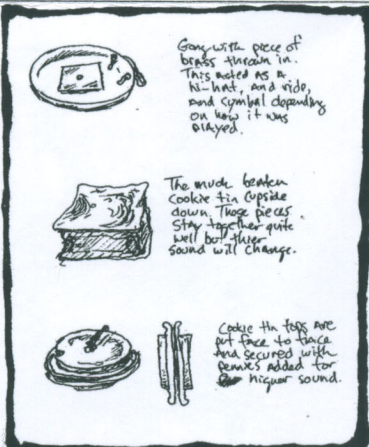 Gong with piece of
brass thrown in.
This acted as a
hi-hat, and ride,
and cymbal depending
on how it was
played.
The much beaten
cookie tin (upside
down. Those pieces
stay together quite
well but thier
sound will change.
Cookie tin tops are
put face to face
and secured with
pennies added for
higher sound.